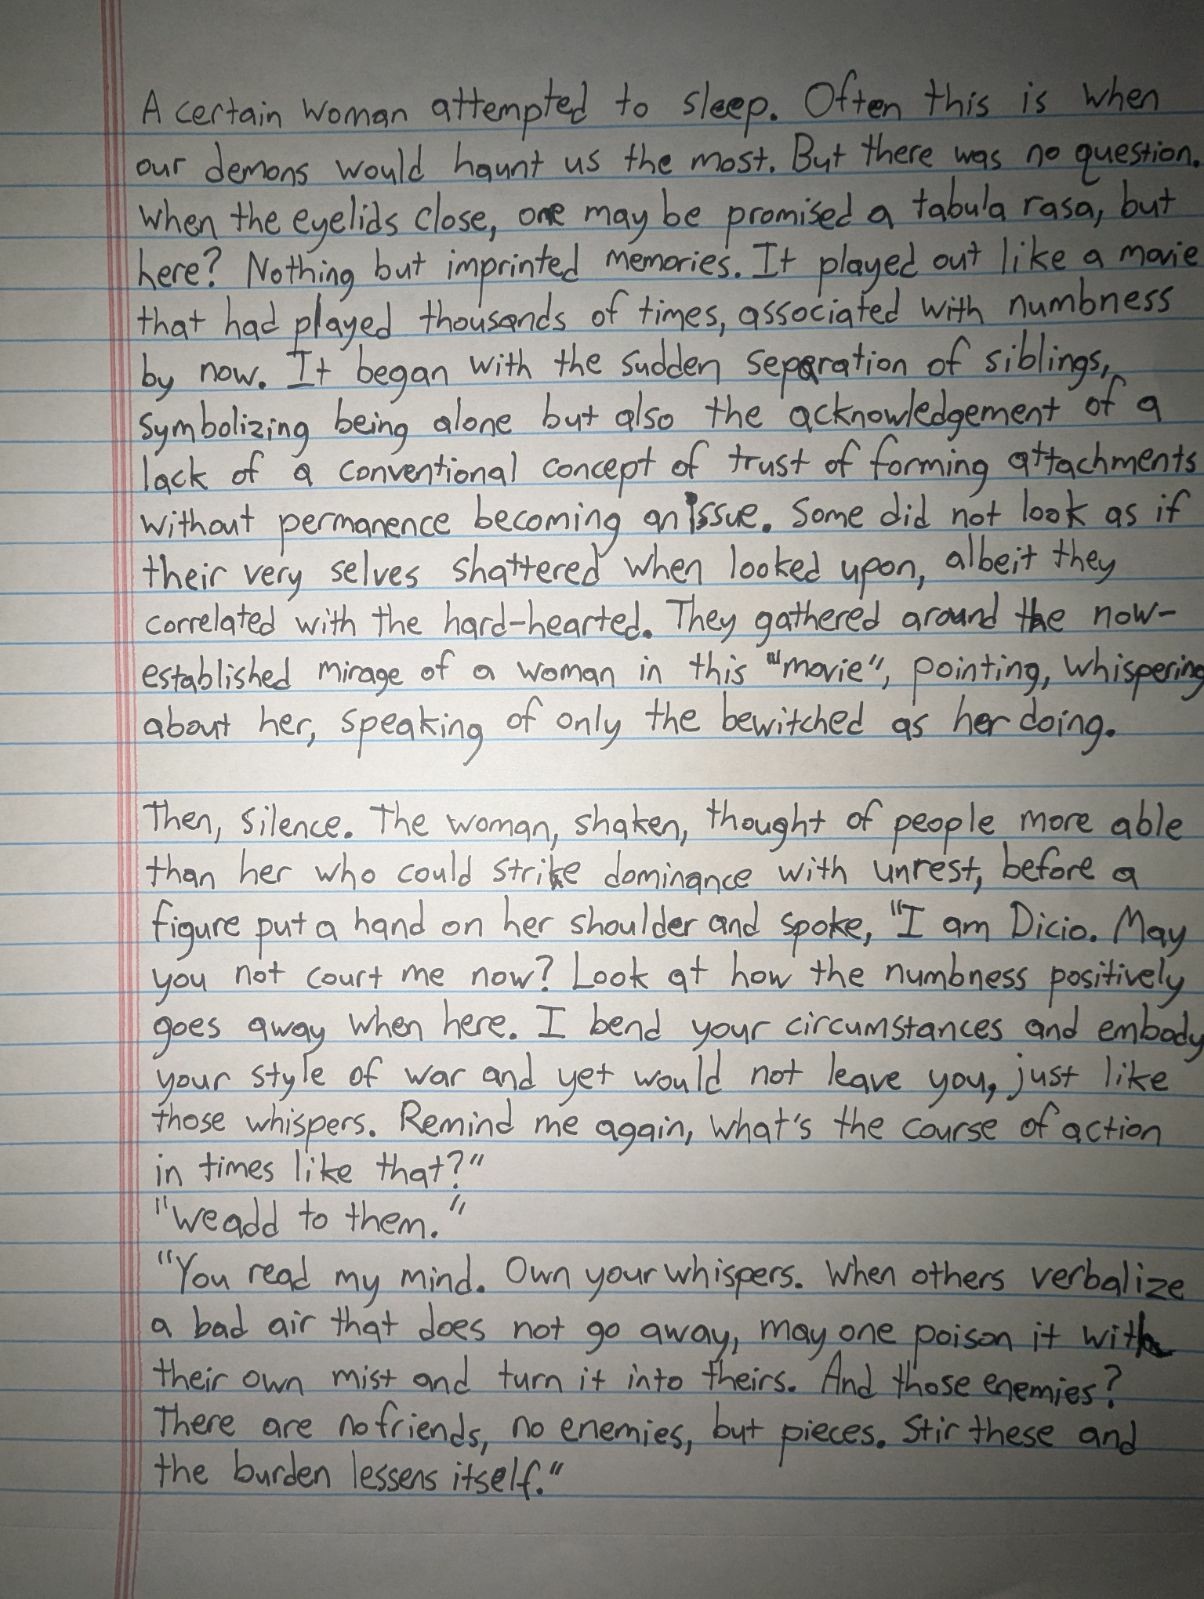 A certain woman attempted to sleep. Often this is when
our demons would haunt us the most. But there was no question.
When the eyelids close, one may be promised a tabula rasa, but
here? Nothing but imprinted memories. It played out like a movie
that had played thousands of times, associated with numbness
by now. It began with the sudden separation of siblings,
symbolizing being alone but also the acknowledgement of a
lack of a conventional concept of trust of forming attachments
without permanence becoming an issue. Some did not look as if
their very selves shattered when looked upon, albeit they
correlated with the hard-hearted. They gathered around the now-
established mirage of a woman in this "movie", pointing, whispering
about her, speaking of only the bewitched as her doing.

Then, silence. The woman, shaken, thought of people more able
than her who could strike dominance with unrest, before a
figure put a hand on her shoulder and spoke, "I am Dicio. May
you not court me now? Look at how the numbness positively
goes away when here. I bend your circumstances and embody
your style of war and yet would not leave you, just like
those whispers. Remind me again, what's the course of action
in times like that?"
"We add to them."
"You read my mind. Own your whispers. When others verbalize
a bad air that does not go away, may one poison it with
their own mist and turn it into theirs. And those enemies?
There are no friends, no enemies, but pieces. Stir these and
the burden lessens itself."